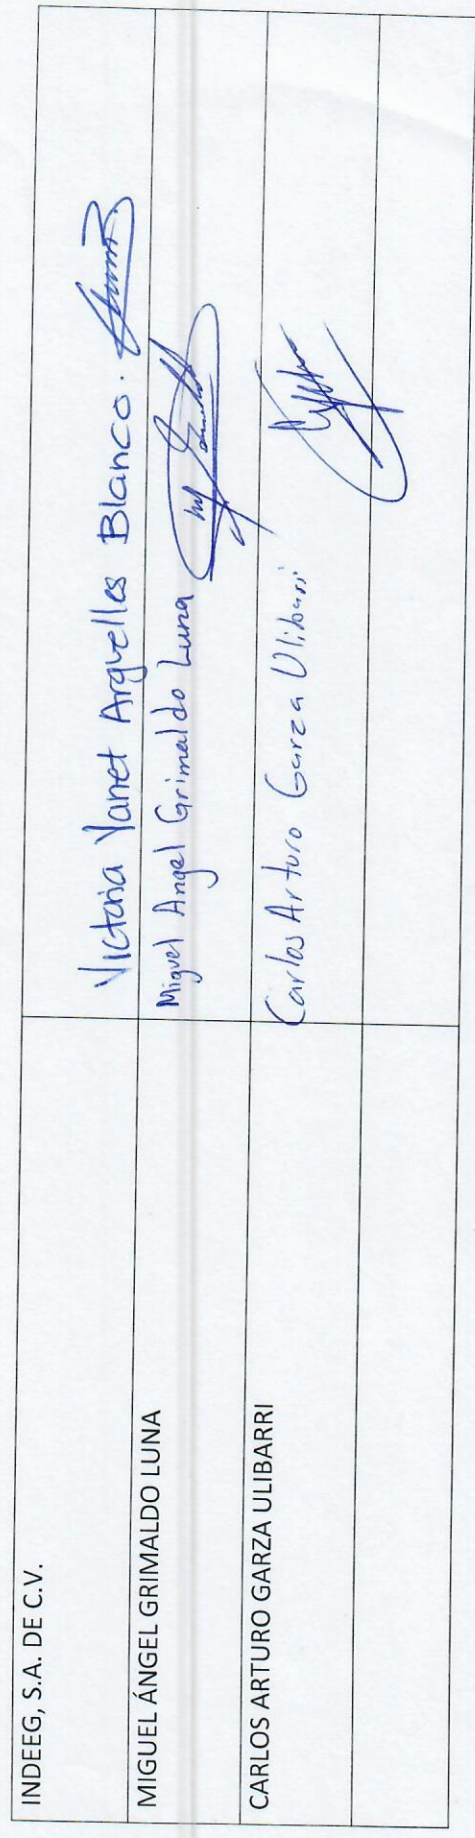 INDEEG, S.A. DE C.V.
Victoria Yanet Arguelles Blanco.
MIGUEL ÁNGEL GRIMALDO LUNA
Miguel Angel Grimaldo Luna
CARLOS ARTURO GARZA ULIBARRI
Carlos Arturo Garza Ulibarri